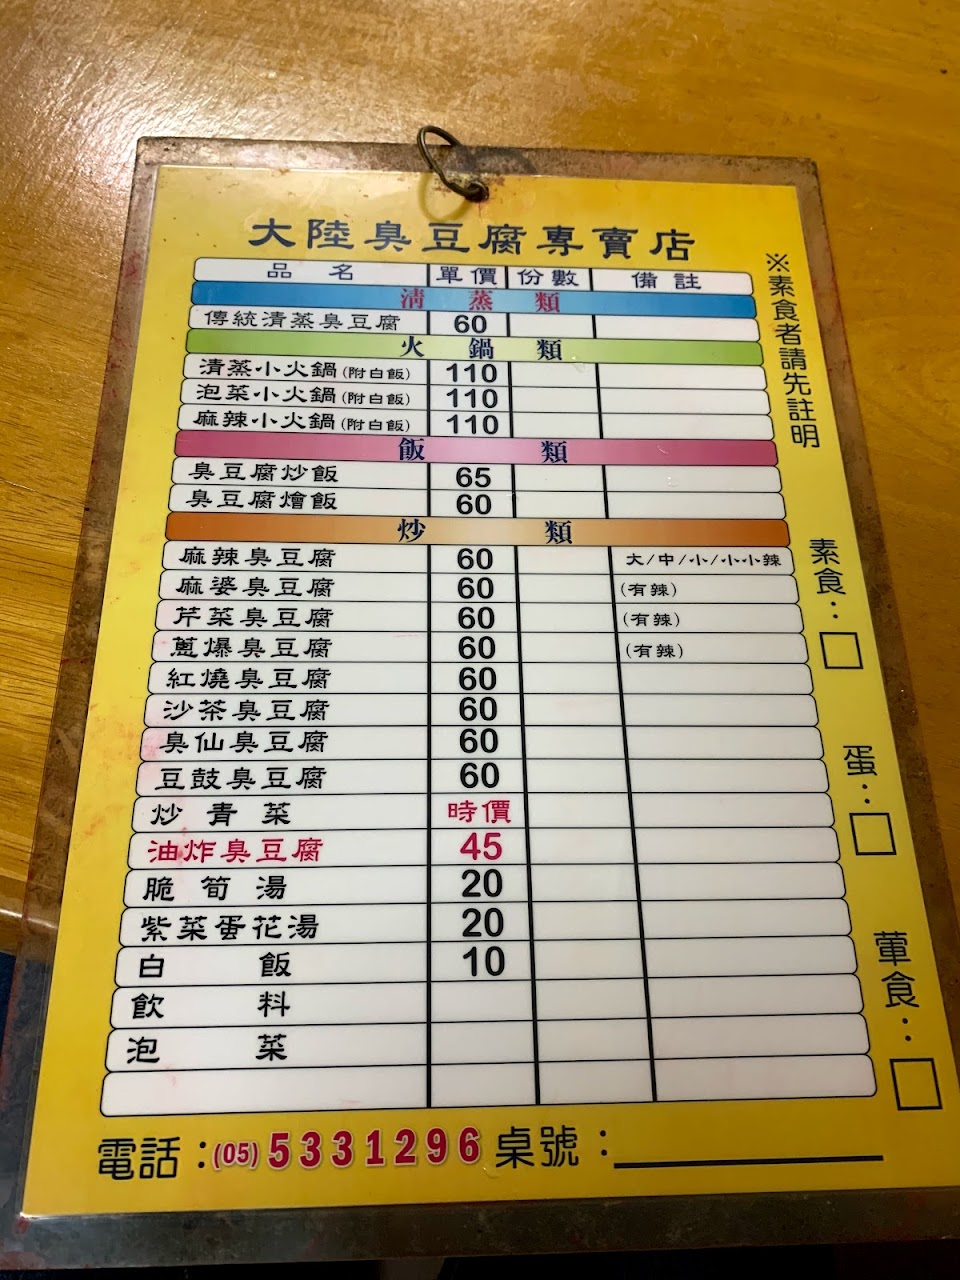 大陸臭豆腐專賣店
品名 單價 份數 備註
清蒸類
傳統清蒸臭豆腐 60
火鍋類
清蒸小火鍋(附白飯) 110
泡菜小火鍋(附白飯) 110
麻辣小火鍋(附白飯) 110
飯類
臭豆腐炒飯 65
臭豆腐燴飯 60
炒類
麻辣臭豆腐 60 大/中/小/小小辣
麻婆臭豆腐 60 (有辣)
芹菜臭豆腐 60 (有辣)
蔥爆臭豆腐 60 (有辣)
紅燒臭豆腐 60
沙茶臭豆腐 60
臭仙臭豆腐 60
豆鼓臭豆腐 60
炒青菜 時價
油炸臭豆腐 45
脆筍湯 20
紫菜蛋花湯 20
白飯 10
飲料
泡菜
※素食者請先註明
素食：□
蛋：□
葷食：□
電話：(05)5331296 桌號：